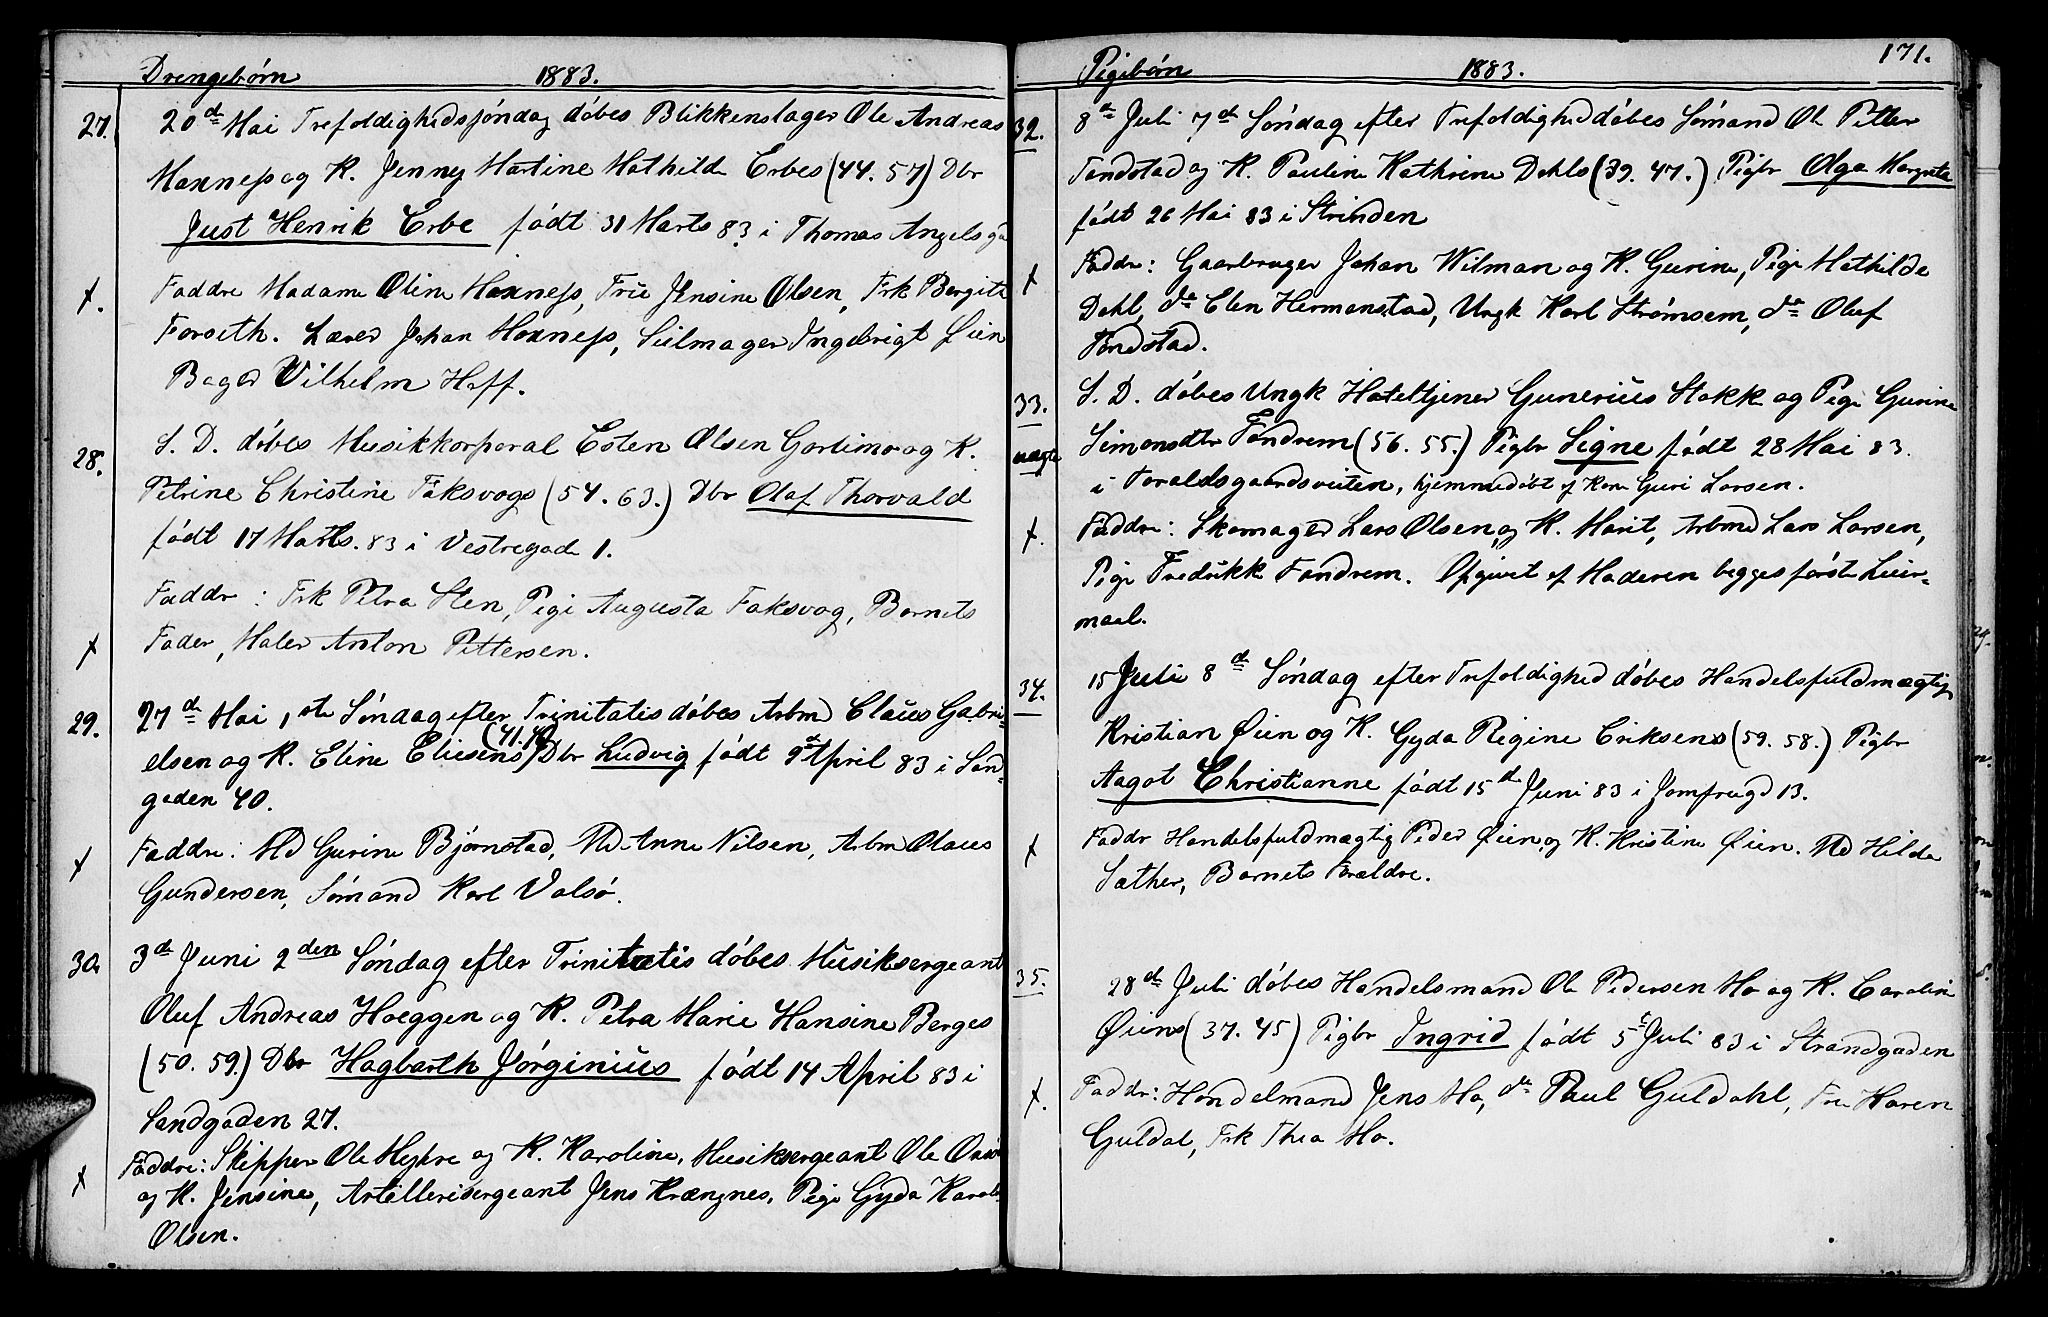 Drengebørn 1883.
27. 20de Mai Trefoldighedssøndag døbes Blikkenslager Ole Andreas
Moxness og K. Jenny Martine Mathilde Erbes (44. 57) Dbr
Just Henrik Erbe født 31 Marts 83 i Thomas Angelsgd
+. Faddre Madam Oline Moxness, Frü Jensine Olsen, Frk Bergitte
Forseth. Lærer Johan Moxness, Seilmager Ingebrigt Øien
Bager Vilhelm Hoff.
28. S. D. døbes Musikkorporal Esten Olsen Gartimo og K.
Petrine Christine Faksvogs (54. 63.) Dbr Olaf Thorvald
født 17 Marts. 83 i Vestregade 1.
Faddr : Frk Petra Sten, Pige Augusta Faksvog, Barnets
+ Fader, Maler Anton Pettersen.
29. 27de Mai 1ste Søndag efter Trinitatis døbes Arbmd Claus Gabri-
elsen og K. Eline Eliesens (41.40) Dbr Ludvig født 9de April 83 i Sand-
gaden 40.
+ Faddre: Md Gurine Bjørnstad, Md Anne Nilsen, Arbm Olaus
Gundersen, Sømand Karl Valsø.
30. 3de Juni 2den Søndag efter Trinitatis døbes Musiksergeant
Oluf Andreas Hoeggen og K. Petra Marie Hansine Berges
(50. 59.) Dbr Hagbarth Jørginius født 14 April 83 i
Sandgaden 27.
Faddre: Skipper Ole Myhre og K. Karoline, Musiksergeant Ole
+ og K. Jensine, Artillerisergeant Jens Krængnes, Pige Gyda Karol
Olsen.
Pigebørn 1883. 171.
32. 8de Juli 7de Søndag efter Trefoldighed døbes Sømand Ole Petter
Tondstad og K. Pauline Kathrine Dahls (39. 47.) Pigbr Olga Margrete
født 26 Mai 83 i Strinden
+ Faddre: Gaarbruger Johan Wilman og K. Gurine, Pige Mathilde
Dahl, do Elen Hermanstad, Ungk Karl Strømsem, do Oluf
Tondstad.
33. S. D. døbes Ungk Hoteltjener Gunerius Stokk og Pige Gurine
uægte Simonsdtr Fondrem (56. 55.) Pigbr Signe født 28 Mai 83.
i Toraldsgaardsveiten, hjemmedøbt af Kone Guri Larsen.
+. Faddre: Skomager Lars Olsen og K. Marit, Arbmd Lars Larsen,
Pige Fredrikk Fondrem. Opgivet af Moderen begges første Leier-
maal.
34. 15 Juli 8de Søndag efter Trefoldighed døbes Handelsfuldmægtig
Kristian Øien og K. Gyda Regine Eriksens (59. 58.) Pigbr
Aagot Christianne født 15de Juni 83 i Jomfrugd 13.
+ Faddr Handelsfuldmægtig Peder Øien og K. Kristine Øien. Md Hilda
Sæther, Barnets Forældre.
35. 28de Juli døbes Handelsmand Ole Pedersen Mo og K. Caroline
Øiens (37. 45) Pigbr Ingrid født 5te Juli 83 i Strandgaden
+. Faddr: Handelmand Jens Mo, do Paul Guldahl, Fru Karen
Guldal, Frk Thea Mo.